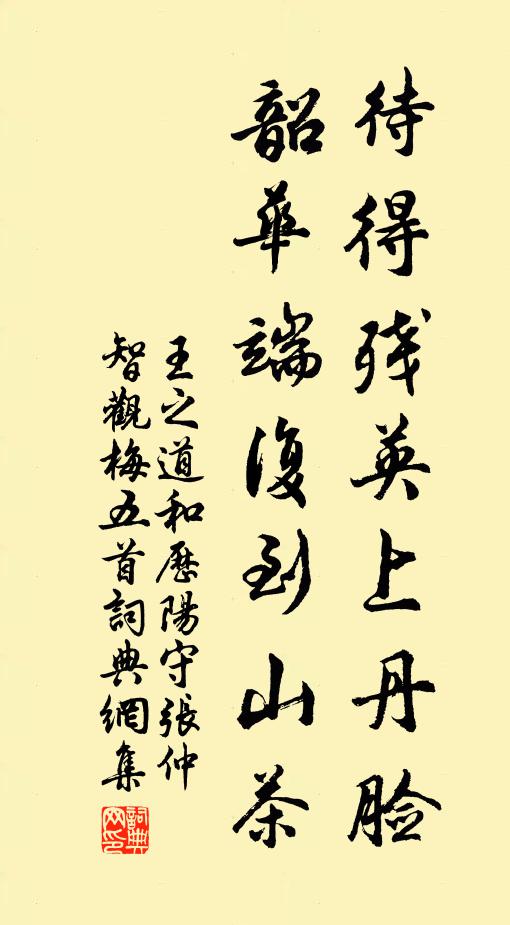 待得残英上丹脸
韶華端復到山茶
王之道和歷陽守張仲
智觀梅五首詞典網集
詞典
网印